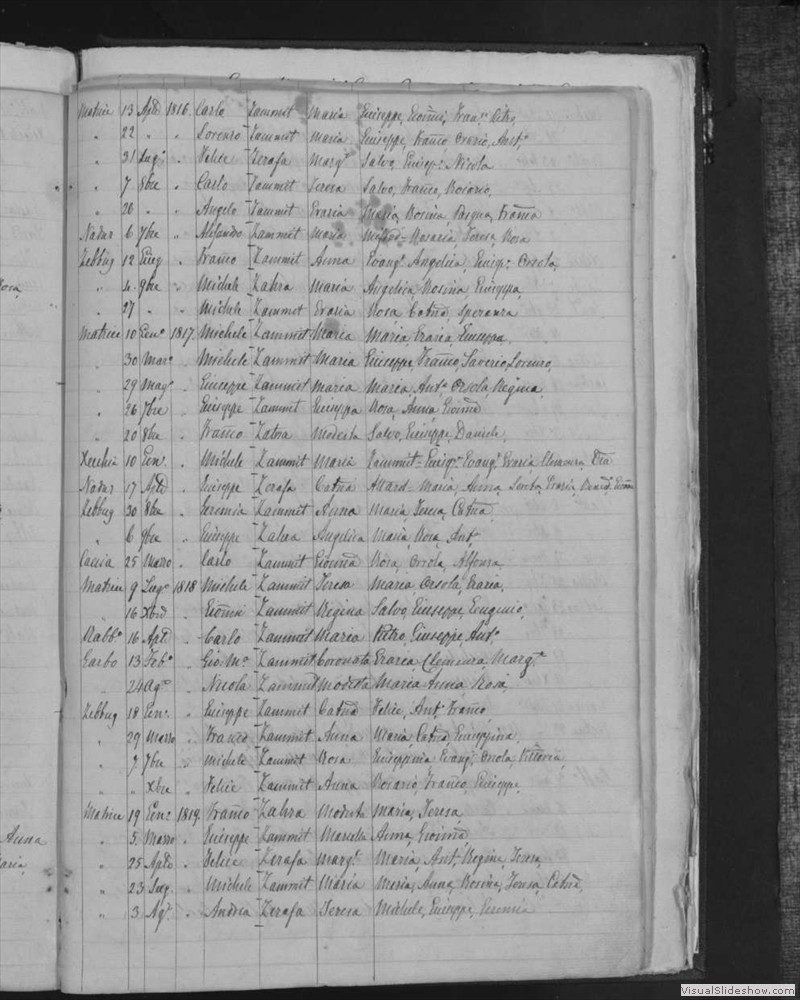 Matrice 13 Aple 1816 Carlo Zammit Maria Giuseppe, Gio͞mi, Fran.co Pietro,
" 22 " " Lorenzo Zammit Maria Giuseppe, Fran͞co Orazio, Ant.o
" 31 Lug.o " Felice Zerafa Marg.ta Salvo, Giusp.e Nicola
" 7 8bre " Carlo Zammit Teresa Salvo, Fran͞co, Rosario,
" 26 " " Angelo Zammit Grazia Maria, Rosina Pasqua, Fran͞ca
Nadur 6 7bre " Zammit Maria Rosaria, Teresa, Rosa
Zebbug 12 Giug " Fran͞co Zammit Anna Evang.a Angelica, Giusp.a Orsola,
" 4 9bre " Michele Zahra Maria Angelica Rosina Giuseppa,
" 27 " " Michele Zammit Grazia Rosa Cat͞na Speranza
Matrice 10 Gen.o 1817 Michele Zammit Maria Maria, Grazia, Giuseppa.
" 30 Mar.o " Michele Zammit Maria Giuseppe, Fran͞co, Saverio, Lorenzo,
" 29 Mag.o " Giuseppe Zammit Maria Maria Ant.a Orsola, Regina,
" 26 7bre " Giuseppe Zammit Giuseppa Rosa, Anna Gio͞nna
" 20 8bre " Fran͞co Zahra Modesta Salvo, Giuseppe, Daniele,
Xeuchia 10 Gen. " Michele Zammit Maria Zammit - Giusp.a Evang.a Grazia
Nadur 17 Aple " Giuseppe Zerafa Cat͞na Attard Maria, Anna, Grazia,
Zebbug 30 8bre " Geremia Zammit Anna Maria, Teresa, Cat͞na,
" 6 9bre " Giuseppe Zahra Angelica Maria Rosa, Ant.a
Caccia 25 Marzo " Carlo Zammit Gio͞nna Rosa, Orsola, Alfonsa,
Matrice 9 Lug.o 1818 Michele Zammit Teresa Maria, Orsola, Grazia,
" 16 Xbre " Gio͞mi Zammit Regina Salvo, Giuseppe, Eugenio,
Rabb.o 16 Aple " Carlo Zammit Maria Pietro, Giuseppe, Ant.o
Garbo 13 Feb.o " Gio. M.a Zammit Coronata Grazia, Clemenza, Marg.ta
" 24 Ag.o " Nicola Zammit Modesta Maria Anna Rosa,
Zebbug 18 Gen. " Giuseppe Zammit Cat͞na Felice, Ant.o Fran͞co,
" 29 Marzo " Fran͞co Zammit Anna Maria, Cat͞na, Giuseppina
" 7 7bre " Michele Zammit Rosa Giuseppina Evang.a Orsola, Vittoria,
" " Xbre " Felice Zammit Anna Rosario, Fran͞co, Giuseppe,
Matrice 19 Gen. 1819 Fran͞co Zahra Modesta Maria, Teresa,
" 5 Marzo " Giuseppe Zammit Marcella Anna, Gio͞nna
" 25 Aple " Felice Zerafa Marg.ta Maria, Ant.a Regina, Teresa,
" 23 Lug. " Michele Zammit Maria Maria, Anna, Rosina, Teresa, Cat͞na,
" 3 Ag.o " Andrea Zerafa Teresa Michele, Giuseppe,
Anna
aria,
VisualSlideshow.com